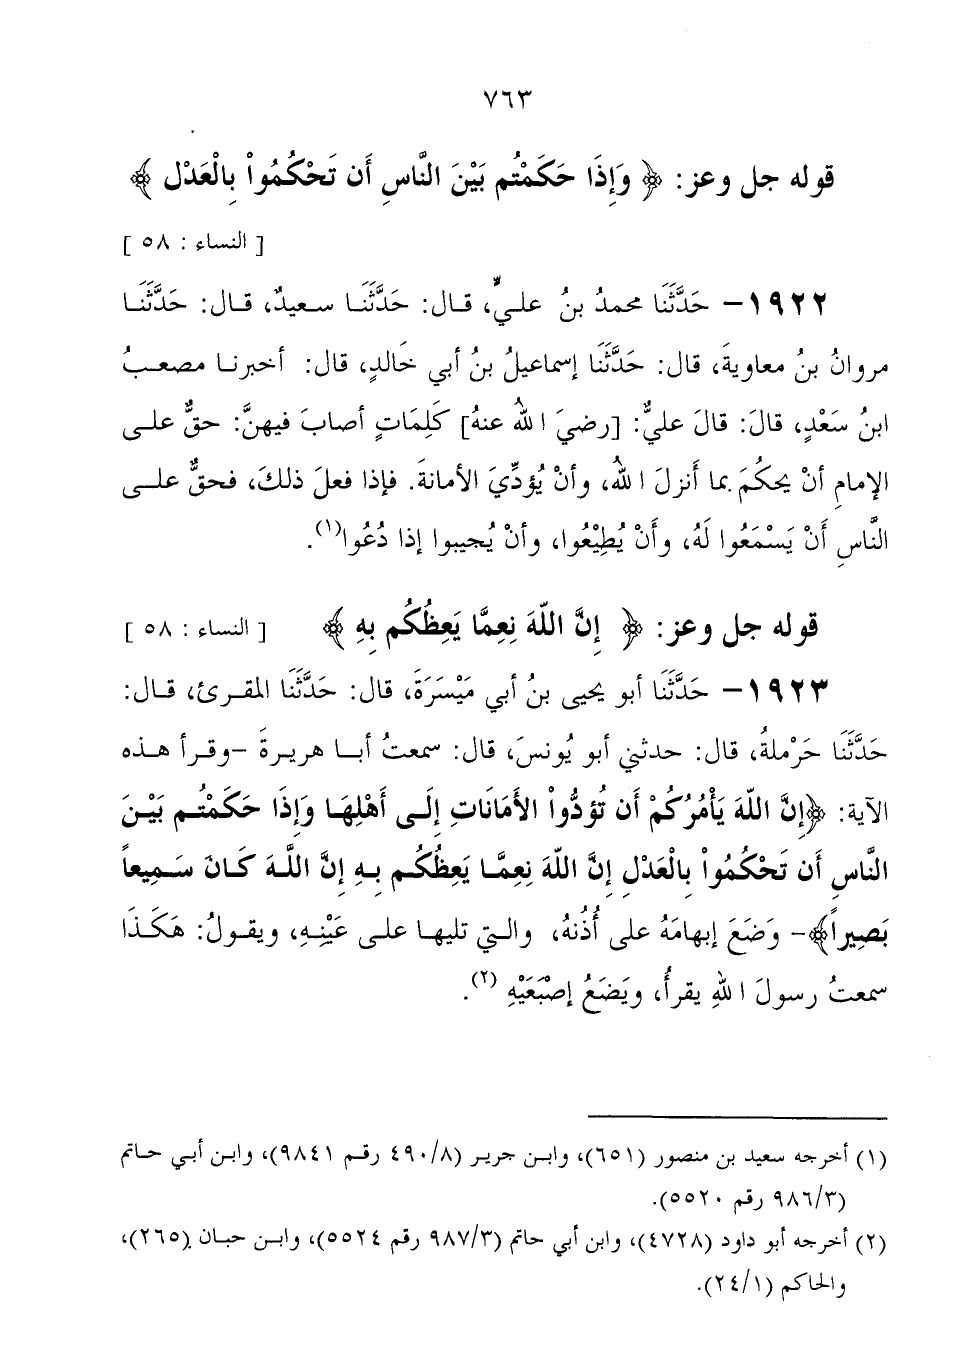 ٧٦٣
قوله جل وعز: ﴿ وَإِذَا حَكَمْتُم بَيْنَ النَّاسِ أَن تَحْكُمُواْ بِالْعَدْلِ ﴾
[ النساء : ٥٨ ]
١٩٢٢– حَدَّثَنَا محمدُ بنُ عليٍّ، قال: حَدَّثَنَا سعيدٌ، قال: حَدَّثَنَا
مروانُ بنُ معاويةَ، قال: حَدَّثَنَا إسماعيلُ بنُ أبي خَالدٍ، قال: أخبرنا مصعبُ
ابنُ سَعْدٍ، قالَ: قالَ عليٌّ: [رضيَ اللهُ عنهُ] كَلِمَاتٍ أصابَ فيهنَّ: حقٌّ على
الإمامِ أنْ يحكُمَ بما أَنزلَ اللهُ، وأنْ يُؤدِّيَ الأمانةَ. فإذا فعلَ ذلكَ، فحقٌّ على
النَّاسِ أَنْ يَسْمَعُوا لَهُ، وأَنْ يُطِيْعُوا، وأنْ يُجيبوا إذا دُعُوا(١).
قوله جل وعز: ﴿ إِنَّ اللّهَ نِعِمَّا يَعِظُكُم بِهِ ﴾ [ النساء : ٥٨ ]
١٩٢٣– حَدَّثَنَا أبو يحيى بنُ أبي مَيْسَرَةَ، قال: حَدَّثَنَا المقرئ، قال:
حَدَّثَنَا حَرْملةُ، قال: حدثني أبو يُونسَ، قال: سمعتُ أبا هريرةَ –وقرأ هذه
الآية: ﴿إِنَّ اللّهَ يَأْمُرُكُمْ أَن تُؤدُّواْ الأَمَانَاتِ إِلَى أَهْلِهَا وَإِذَا حَكَمْتُم بَيْنَ
النَّاسِ أَن تَحْكُمُواْ بِالْعَدْلِ إِنَّ اللّهَ نِعِمَّا يَعِظُكُم بِهِ إِنَّ اللّهَ كَانَ سَمِيعاً
بَصِيراً﴾– وَضَعَ إبهامَهُ على أُذُنهُ، والتي تليها على عَيْنِهِ، ويقولُ: هَكَذَا
سمعتُ رسولَ اللهِ يقرأُ، ويَضَعُ إصْبَعَيْهِ (٢).
(١) أخرجه سعيد بن منصور (٦٥١)، وابن جرير (٤٩٠/٨ رقم ٩٨٤١)، وابن أبي حاتم
(٩٨٦/٣ رقم ٥٥٢٠).
(٢) أخرجه أبو داود (٤٧٢٨)، وابن أبي حاتم (٩٨٧/٣ رقم ٥٥٢٤)، وابن حبان (٢٦٥)،
والحاكم (٢٤/١).